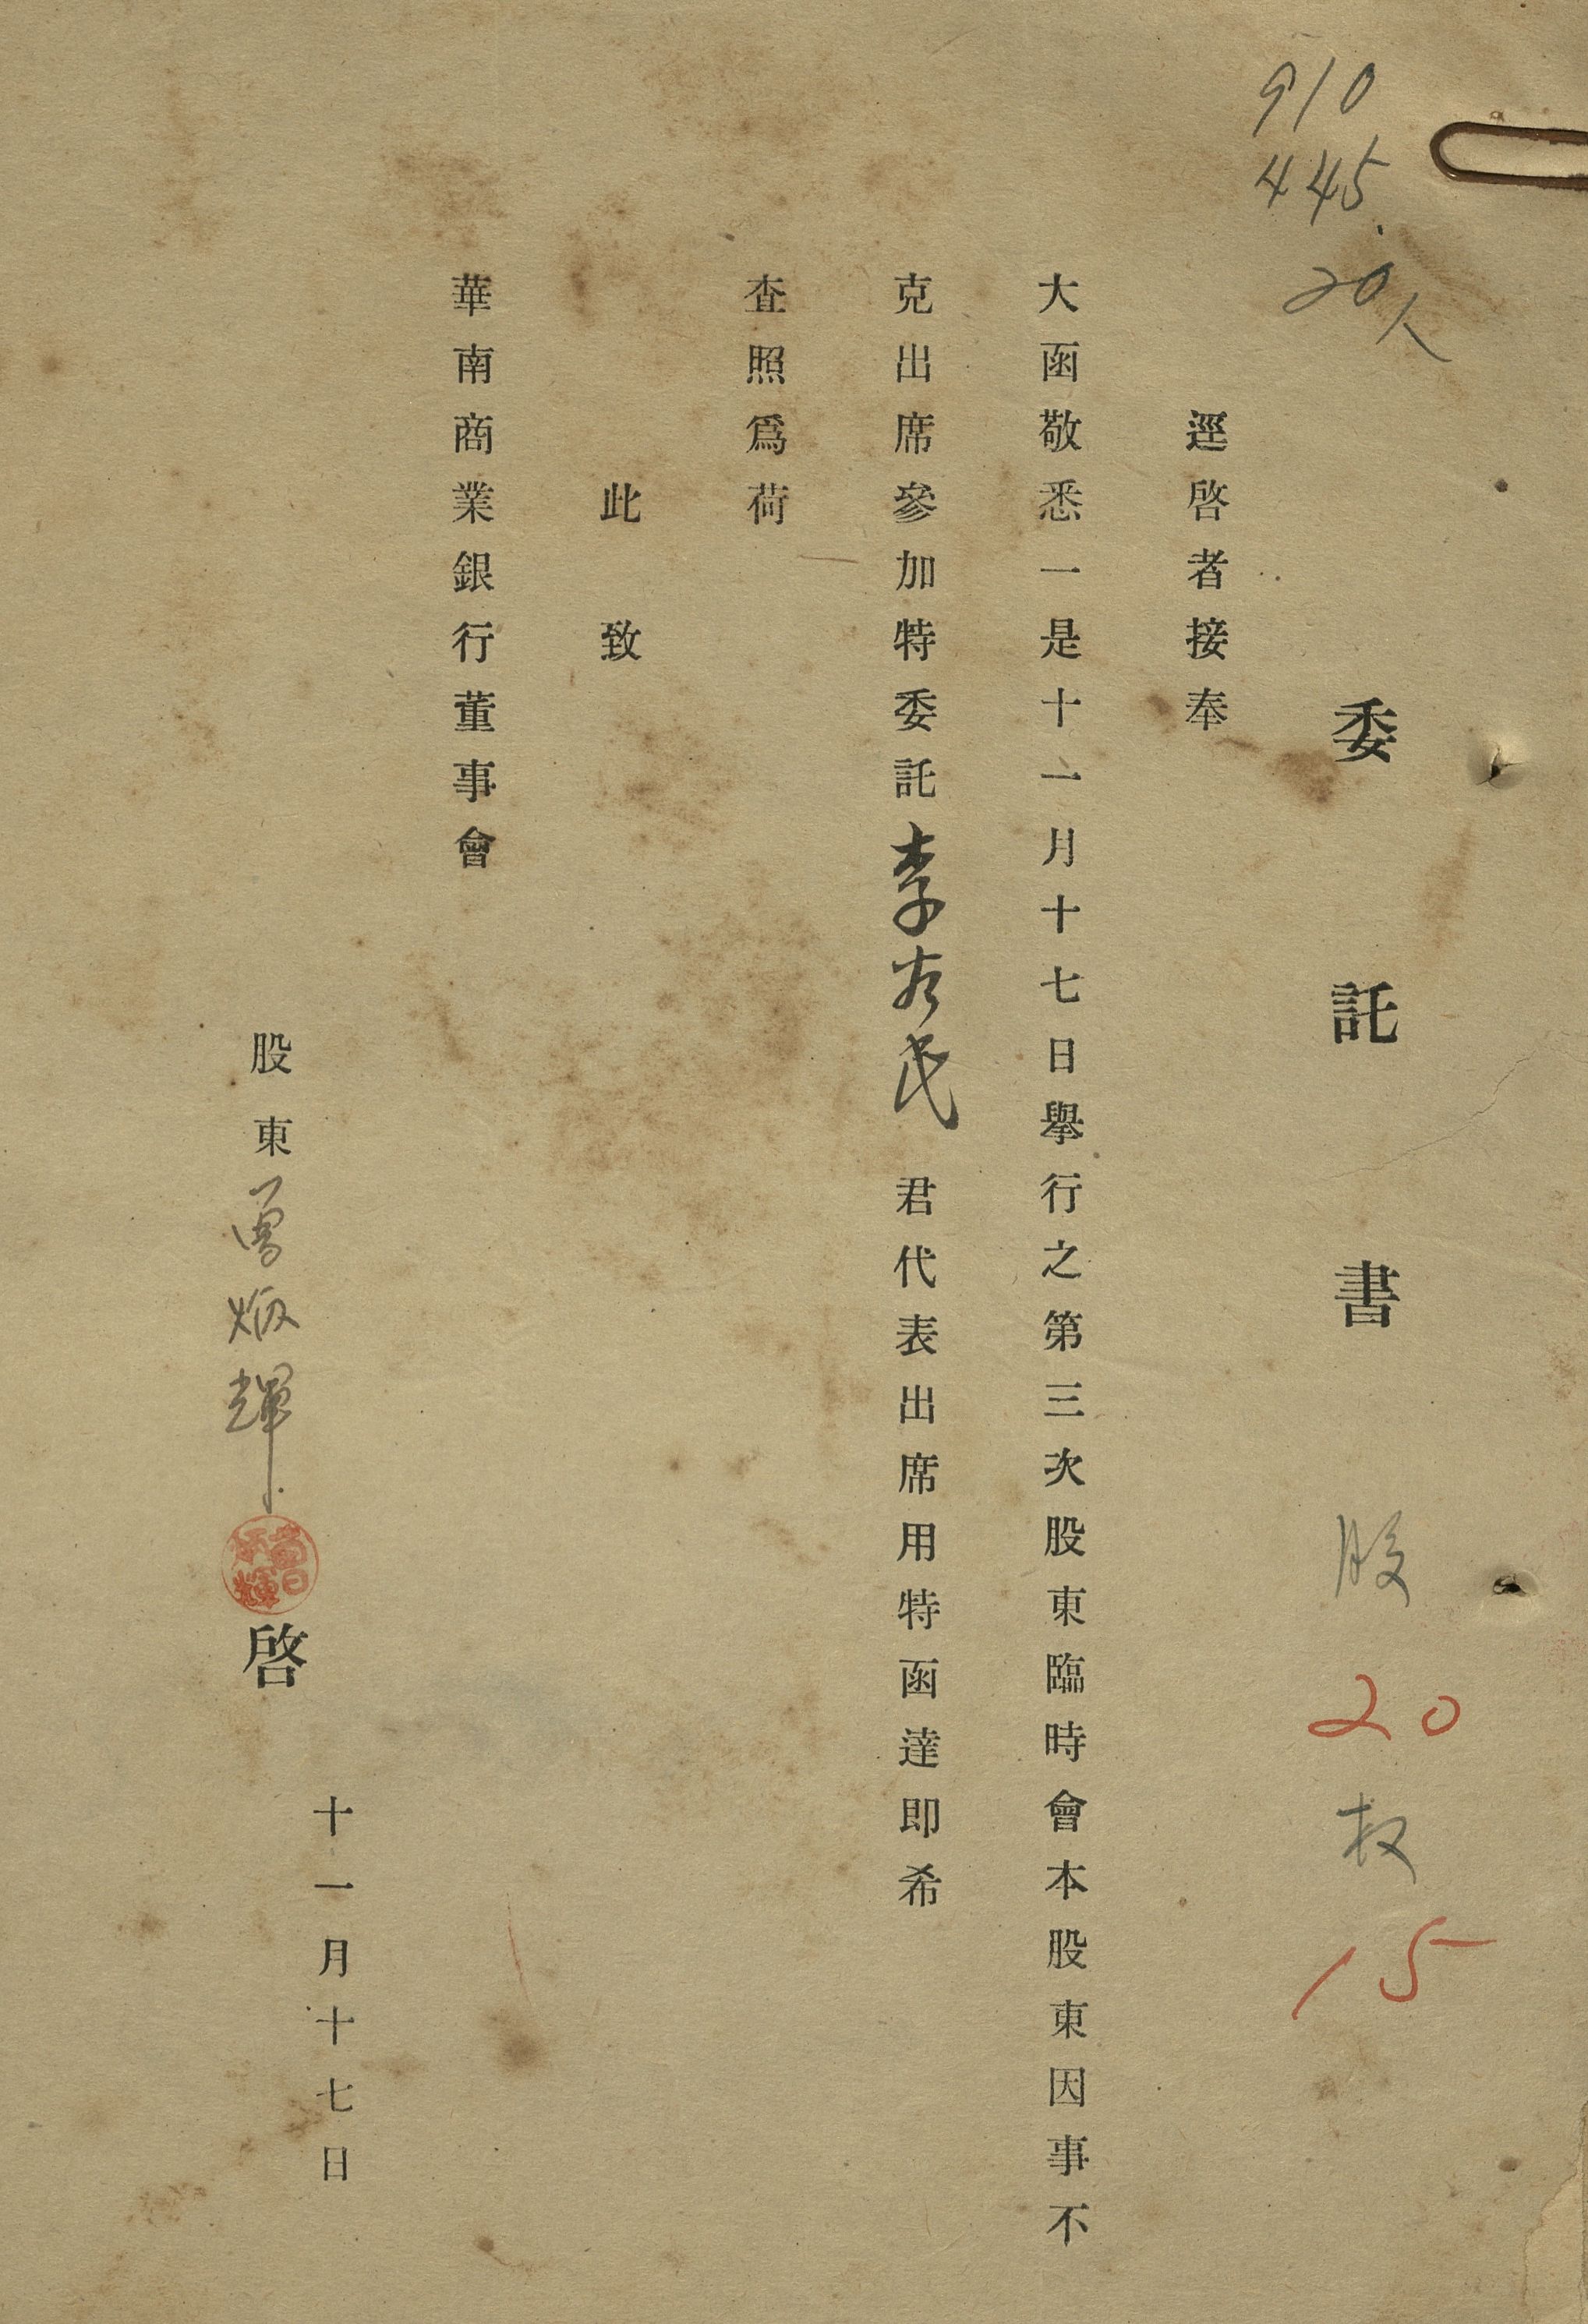 910
445
20人
委託書 股 20 权 15
逕啓者接奉
大函敬悉一是十一月十七日舉行之第三次股東臨時會本股東因事不
克出席參加特委託李友民 君代表出席用特函達即希
查照爲荷
此致
華南商業銀行董事會
十一月十七日
股東曾炳輝 啓
曾炳輝